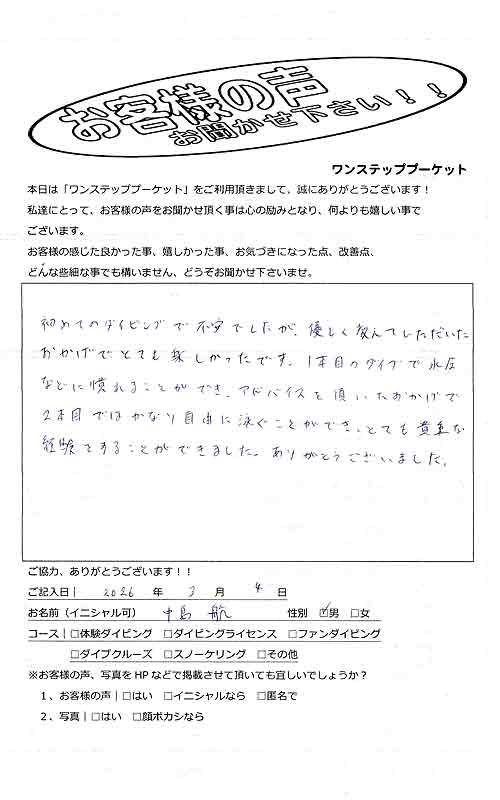 お客様の声
お聞かせ下さい！！
ワンステッププーケット
本日は「ワンステッププーケット」をご利用頂きまして、誠にありがとうございます！
私達にとって、お客様の声をお聞かせ頂く事は心の励みとなり、何よりも嬉しい事で
ございます。
お客様の感じた良かった事、嬉しかった事、お気づきになった点、改善点、
どんな些細な事でも構いません、どうぞお聞かせ下さいませ。
初めてのダイビングで不安でしたが、優しく教えていただいた
おかげでとても楽しかったです。1本目のダイブで水圧
などに慣れることができ、アドバイスを頂いたおかげで
2本目ではかなり自由に泳ぐことができ、とても貴重な
経験をすることができました。ありがとうございました。
ご協力、ありがとうございます！！
ご記入日｜ 2026 年 3 月 4 日
お名前（イニシャル可） 中島 航 性別 ☑男 □女
コース｜□体験ダイビング □ダイビングライセンス □ファンダイビング
□ダイブクルーズ □スノーケリング □その他
※お客様の声、写真をHPなどで掲載させて頂いても宜しいでしょうか？
１、お客様の声｜□はい □イニシャルなら □匿名で
２、写真｜□はい □顔ボカシなら